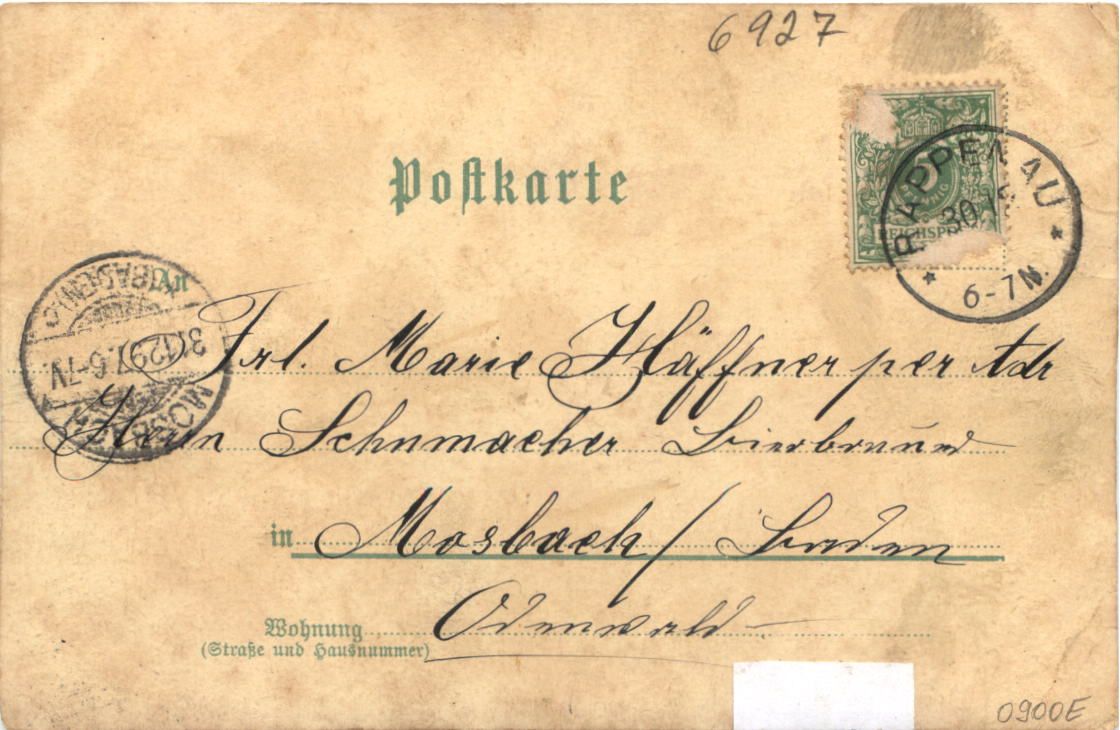 6927
Postkarte
5
PFENNIG
REICHSPOST
RAPPENAU
30
6-7N.
An
MOSBACH
(BADEN)
31 12 97 6-7V
Frl. Marie Häffner per Adr
Herrn Schumacher Bierbrauer
in Mosbach / Baden
Odenwald
Wohnung
(Straße und Hausnummer)
0900E